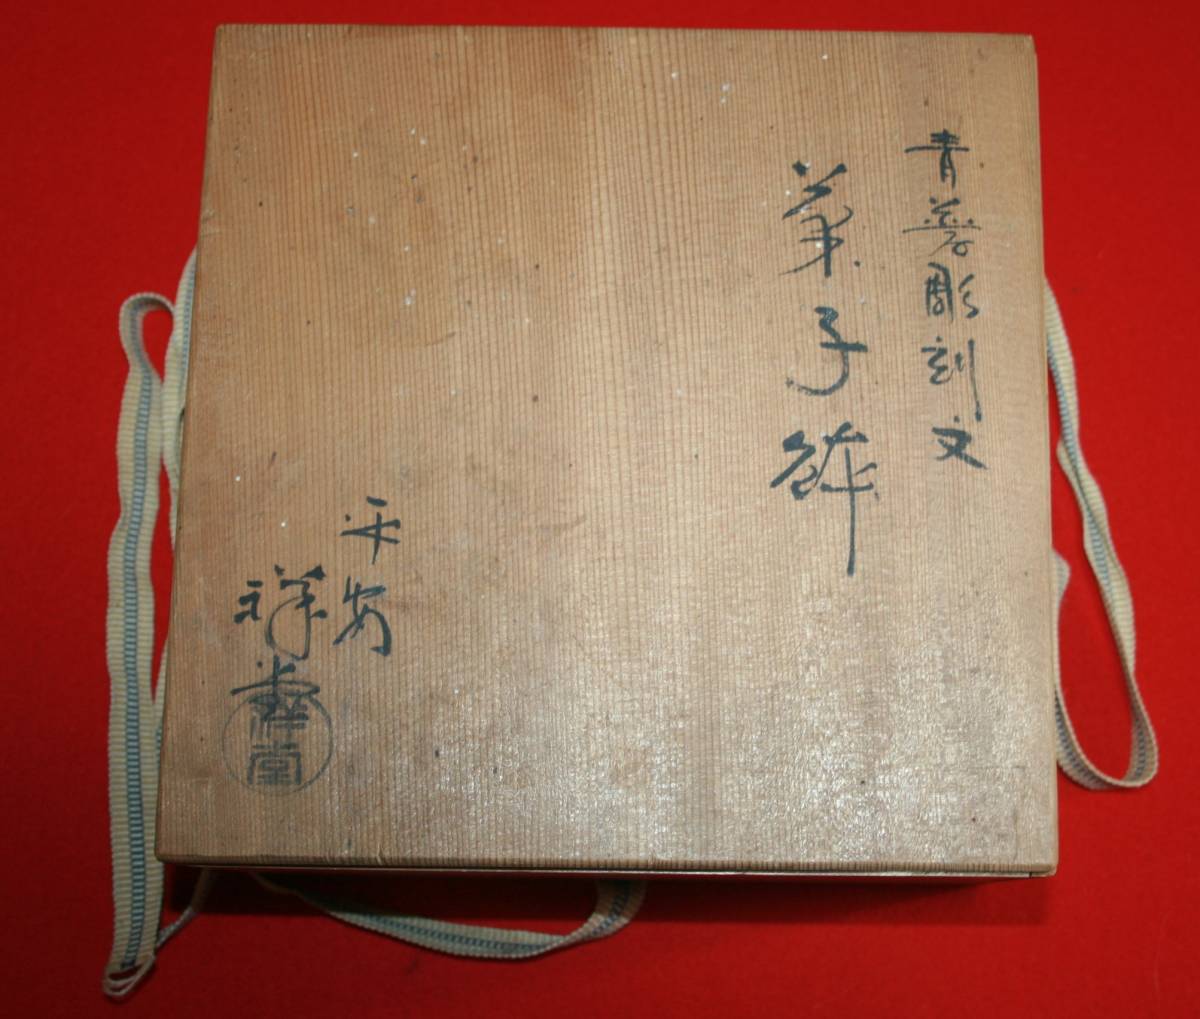 青磁彫刻文
菓子鉢
平安
祥堂
祥堂